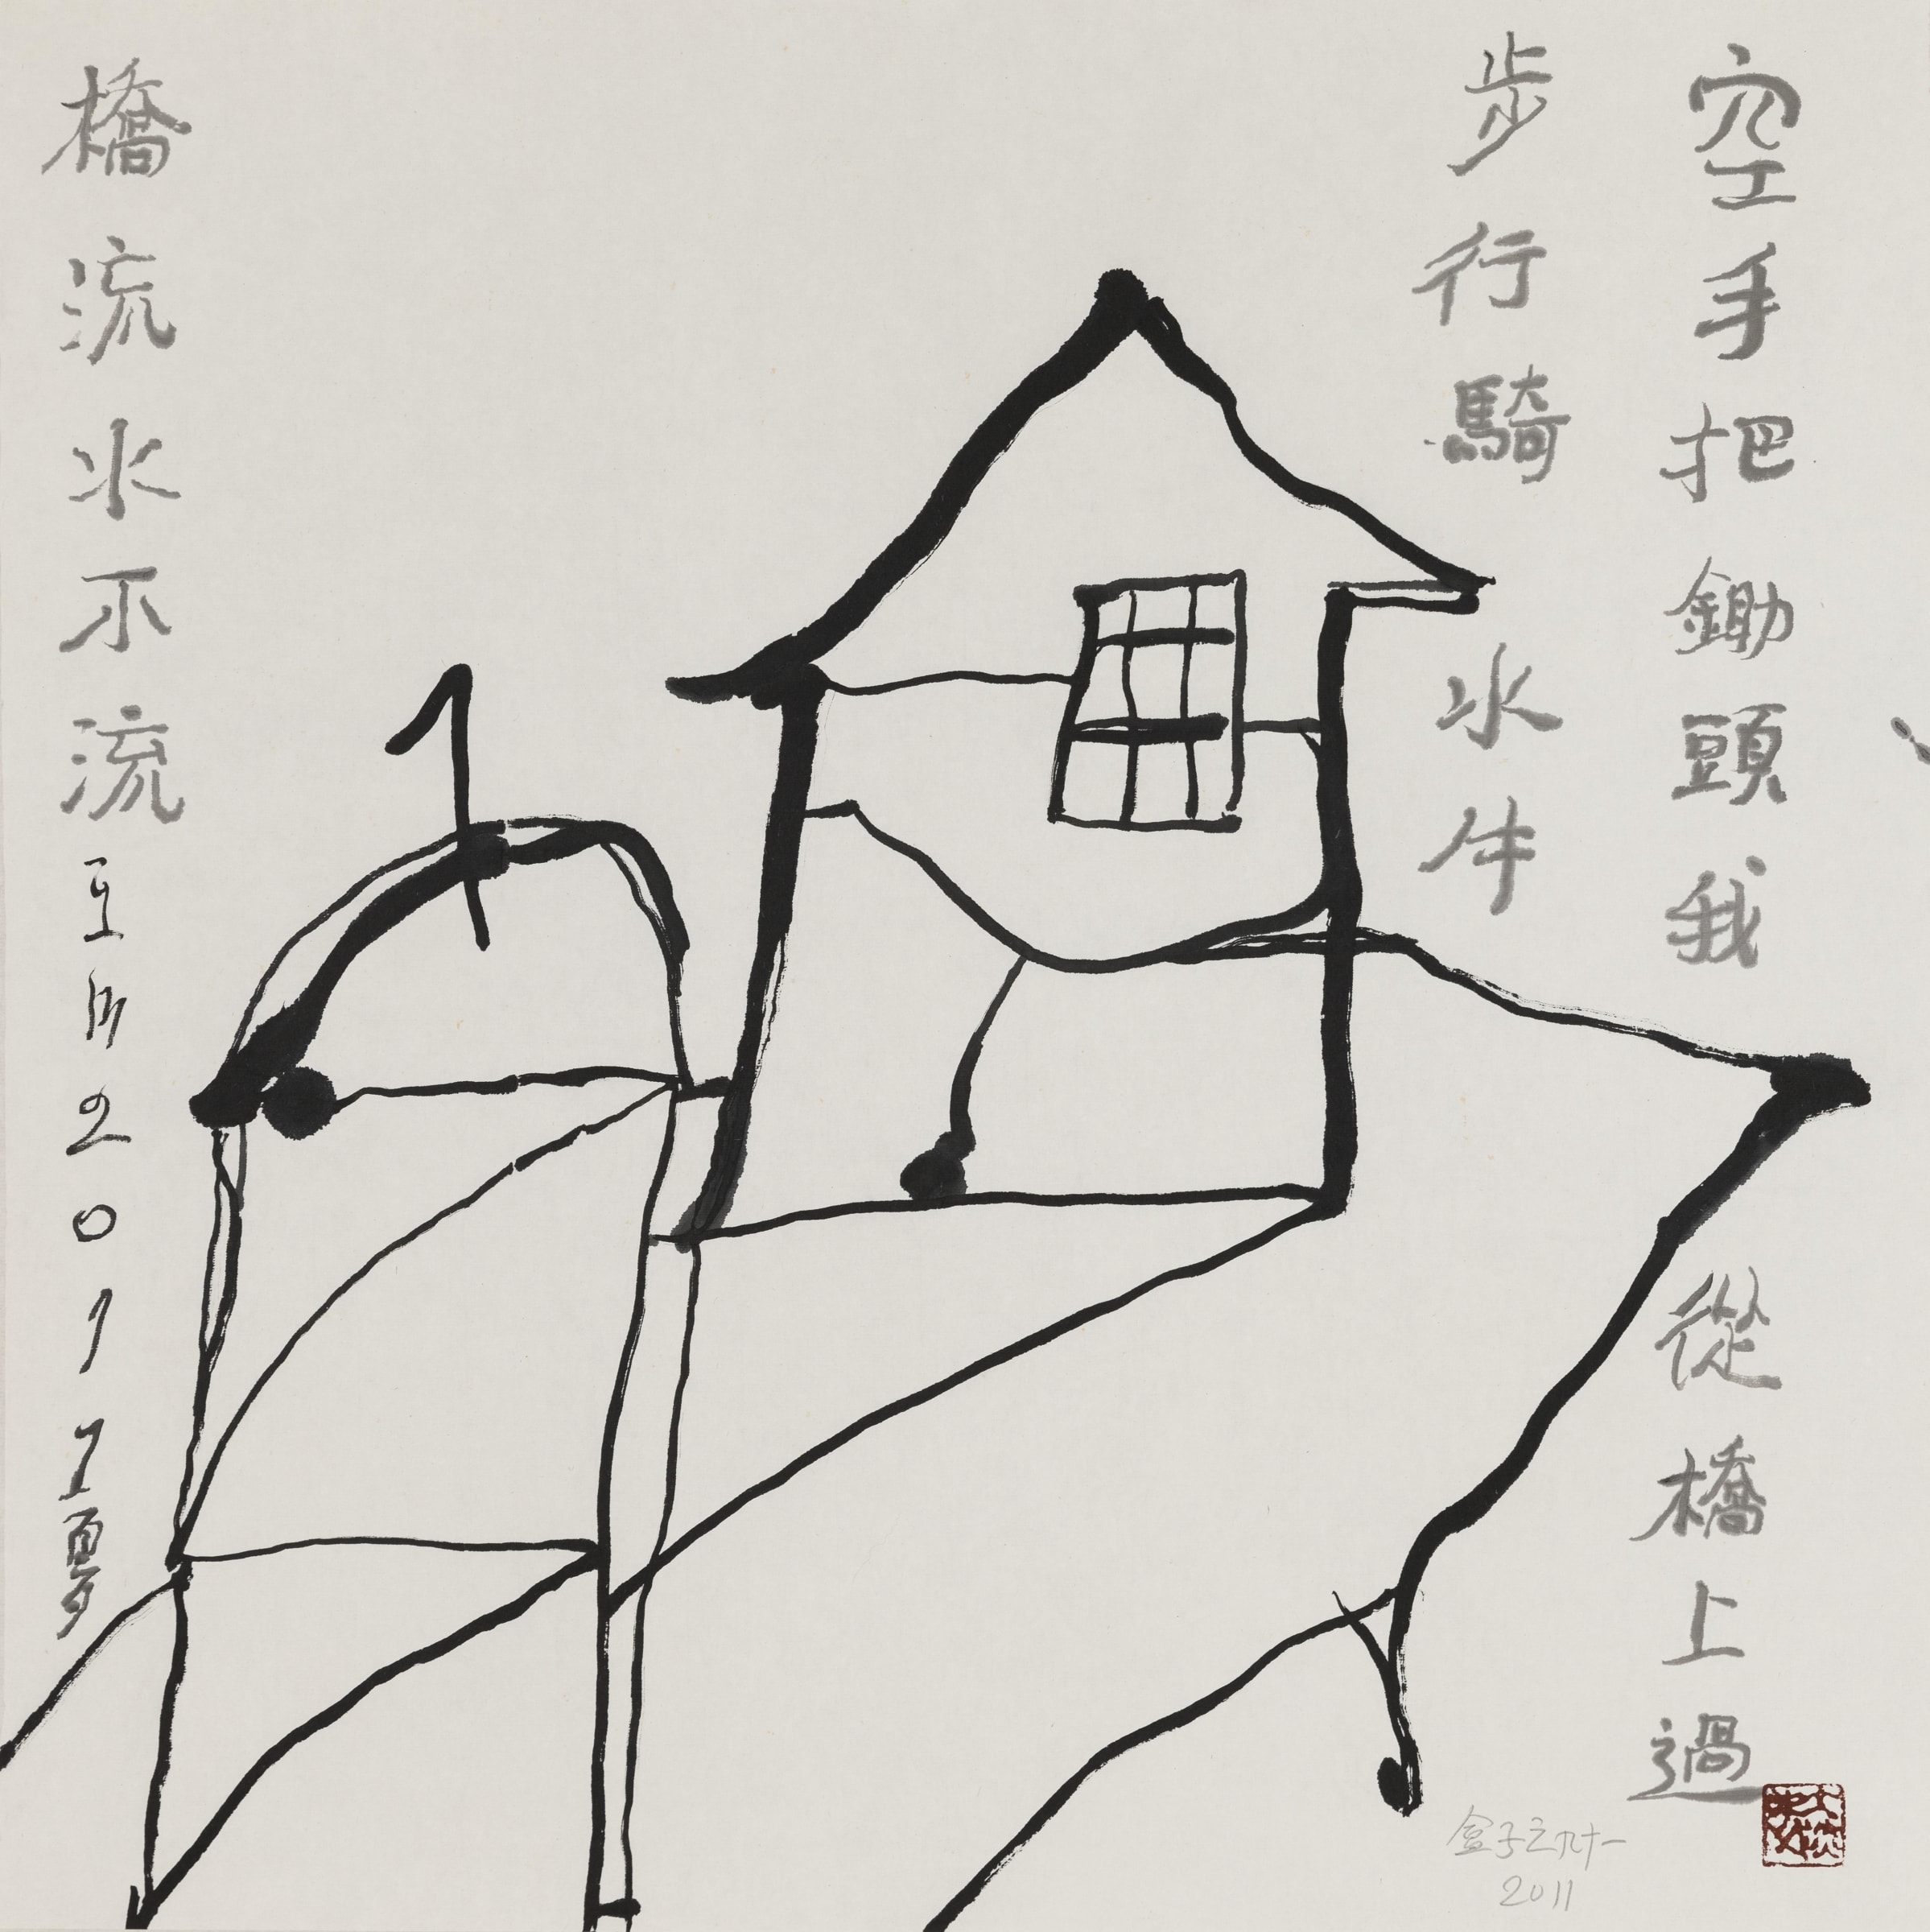 空手把鋤頭我 從橋上過
步行騎 水牛
橋流水不流 2011夏
盒子之九十一
2011